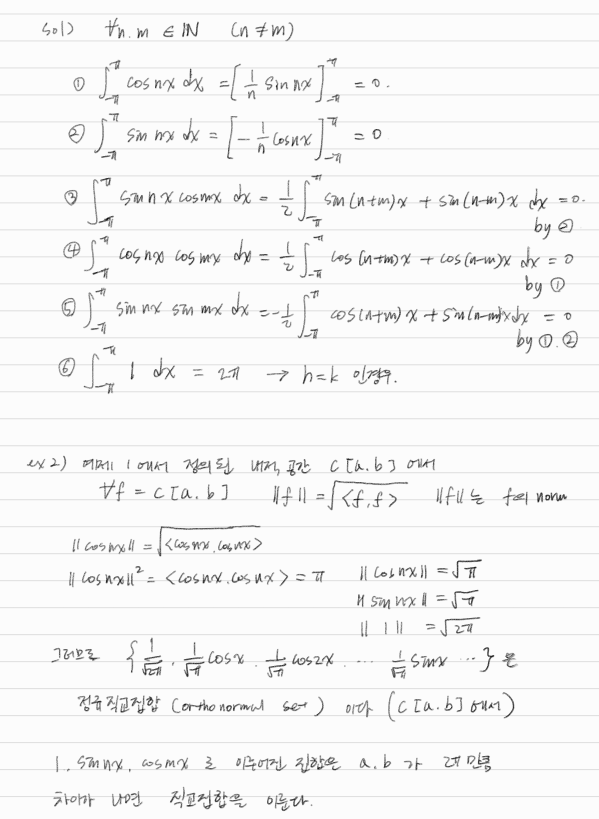 sol) ∀n.m ∈ IN (n ≠ m)
① ∫_{-π}^{π} cos nx dx = [1/n sin nx]_{-π}^{π} = 0.
② ∫_{-π}^{π} sin nx dx = [-1/n cos nx]_{-π}^{π} = 0
③ ∫_{-π}^{π} sin nx cos mx dx = 1/2 ∫_{-π}^{π} sin(n+m)x + sin(n-m)x dx = 0.
by ②
④ ∫_{-π}^{π} cos nx cos mx dx = 1/2 ∫_{-π}^{π} cos(n+m)x + cos(n-m)x dx = 0
by ①
⑤ ∫_{-π}^{π} sin nx sin mx dx = -1/2 ∫_{-π}^{π} cos(n+m)x + sin(n-m)x dx = 0
by ①.②
⑥ ∫_{-π}^{π} 1 dx = 2π → n=k 인경우.
ex 2) 예제 1에서 정의된 내적 공간 C[a.b] 에서
∀f = C[a.b] ||f|| = √<f,f> ||f|| 는 f의 norm
||cos nx|| = √<cos nx, cos nx>
||cos nx||² = <cos nx, cos nx> = π ||cos nx|| = √π
||sin nx|| = √π
||1|| = √2π
그러므로 {1/√2π, 1/√π cos x, 1/√π cos 2x, ... 1/√π sin x ...} 은
정규직교집합 (orthonormal set) 이다 (C[a.b] 에서)
1, sin nx, cos mx 로 이루어진 집합은 a.b 가 2π 만큼
차이가 나면 직교집합을 이룬다.